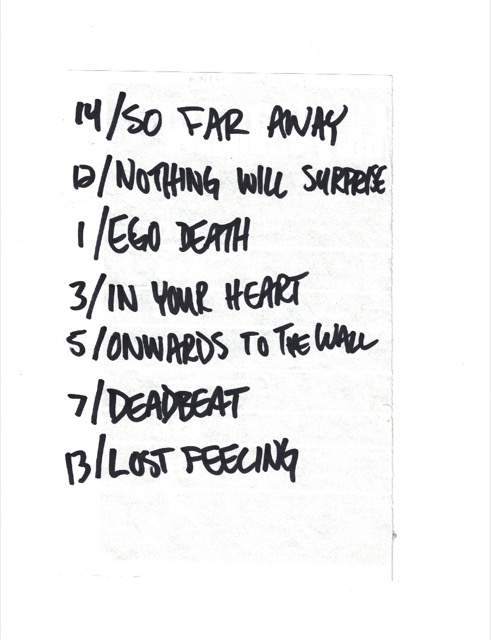 14/SO FAR AWAY
12/NOTHING WILL SURPRISE
1/EGO DEATH
3/IN YOUR HEART
5/ONWARDS TO THE WALL
7/DEADBEAT
13/LOST FEELING